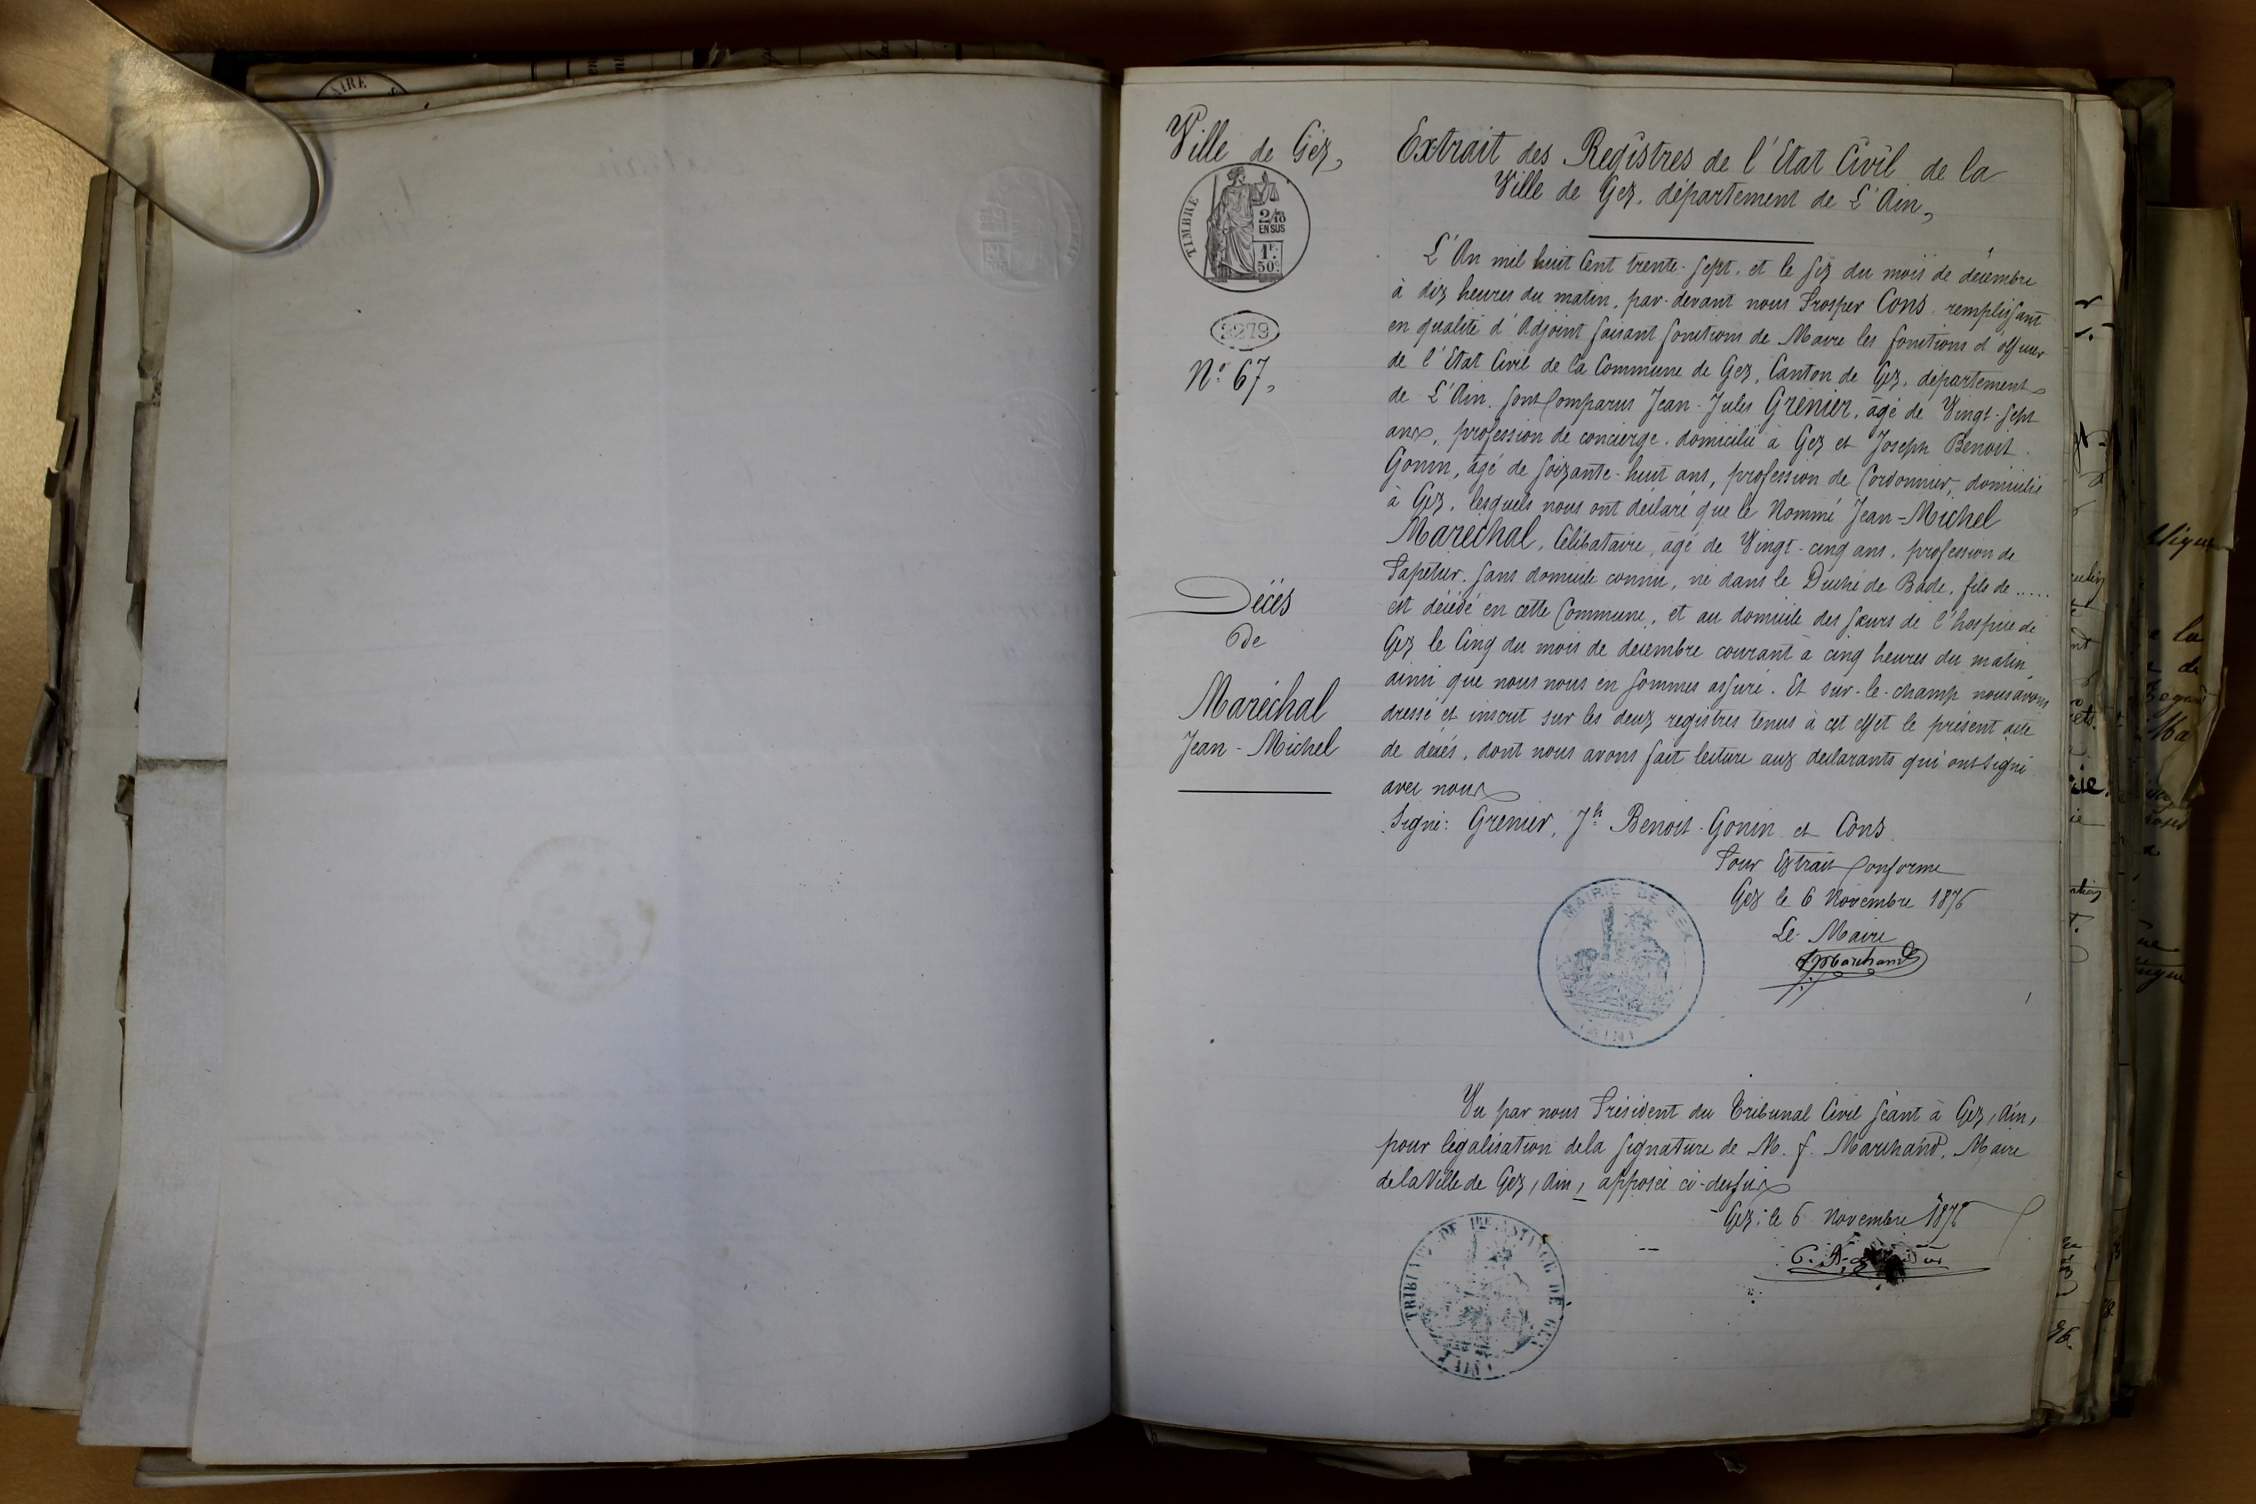 Ville de Gex,
TIMBRE
2/10
EN SUS
1F.
50c.
2279
No. 67,
Décès
de
Maréchal
Jean-Michel
Extrait des Registres de l'Etat Civil de la
Ville de Gex, département de L'Ain,
L'An mil huit Cent trente-sept, et le six du mois de décembre
à dix heures du matin, par-devant nous Prosper Cons remplissant
en qualité d'Adjoint faisant fonctions de Maire les fonctions d'officier
de l'Etat Civil de la Commune de Gex, Canton de Gex, département
de L'Ain, sont Comparus Jean-Jules Grenier, âgé de Vingt-sept
ans, profession de concierge, domicilié à Gex et Joseph Benoit
Gonin, âgé de soixante-huit ans, profession de Cordonnier, domicilié
à Gex, lesquels nous ont déclaré que le Nommé Jean-Michel
Maréchal, Célibataire, âgé de Vingt-cinq ans, profession de
Papetier, sans domicile connu, né dans le Duché de Bade, fils de ......
est décédé en cette Commune, et au domicile des Sœurs de l'hospice de
Gex le Cinq du mois de décembre courant à cinq heures du matin,
ainsi que nous nous en sommes assuré. Et sur-le-champ nous avons
dressé et inscrit sur les deux registres tenus à cet effet le présent acte
de décès, dont nous avons fait lecture aux déclarants qui ont signé
avec nous
Signé: Grenier, Jh Benoit-Gonin et Cons
Pour Extrait Conforme
Gex le 6 Novembre 1876
Le Maire
F. Marchand
MAIRIE DE GEX
(AIN)
Vu par nous Président du Tribunal Civil séant à Gex, Ain,
pour légalisation de la signature de M. f. Marchand, Maire
de la Ville de Gex, Ain, apposée ci-dessus
Gex, le 6 Novembre 1876
TRIBUNAL DE 1RE INSTANCE DE GEX